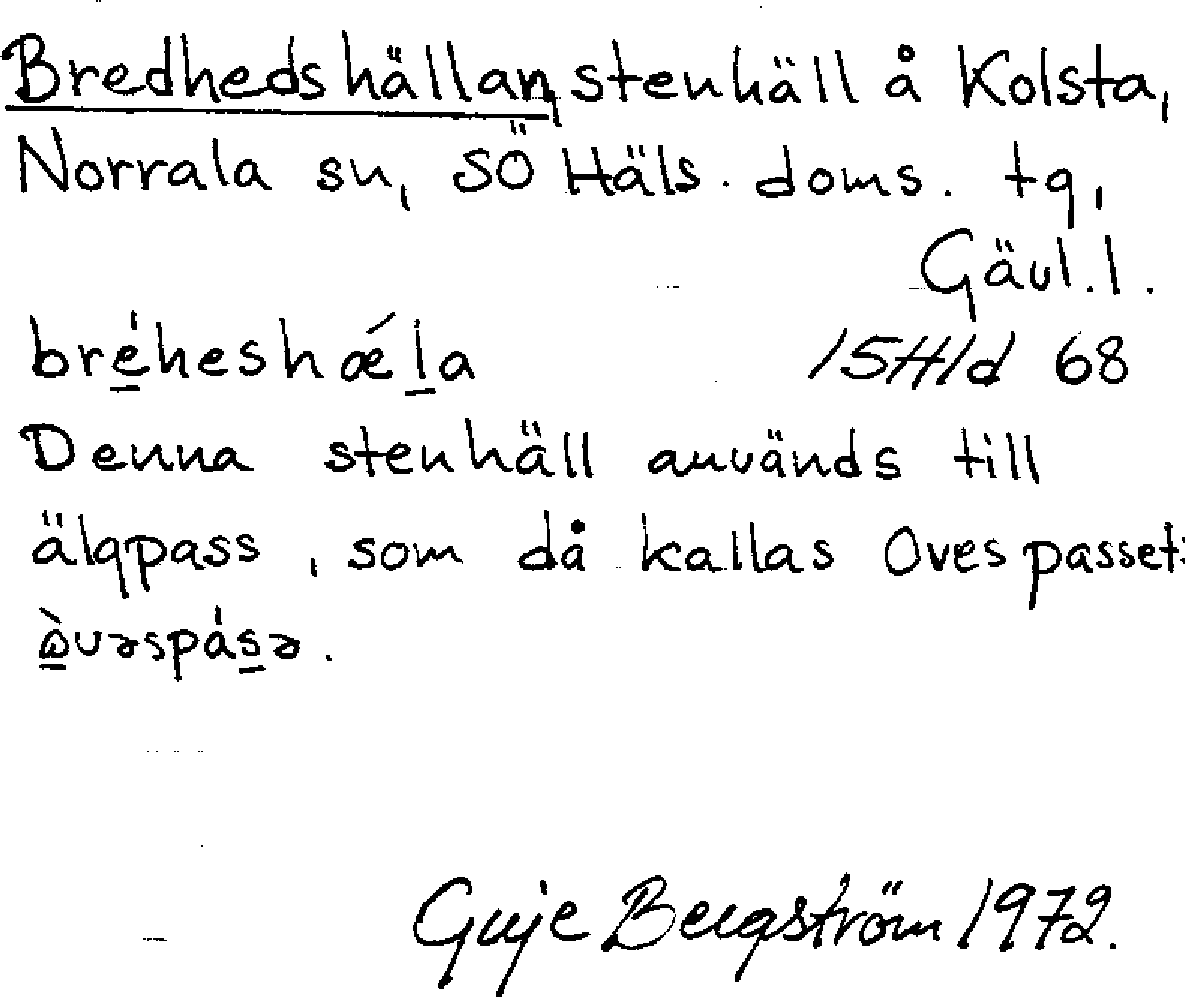 Bredhedshällan, stenhäll å Kolsta,
Norrala sn, SÖ Häls. doms. tg,
Gävl. l.
bre̲̍heshǽl̲a
15H1d 68
Denna stenhäll används till
älgpass, som då kallas Ovespasset: